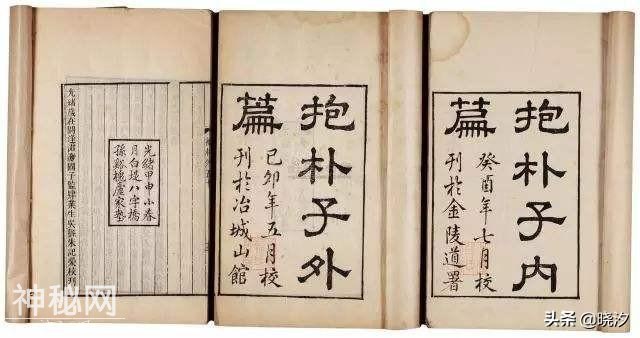 抱朴子内
篇
癸酉年七月校
刊於金陵道署
抱朴子外
篇
己卯年五月校
刊於冶城山館
光緒甲申小春
月白堤八字橋
孫谿槐廬家塾
光緒歲在閼逢涒灘國子監肄業生吳縣朱記榮校刊
神秘网
头条 @晓汐